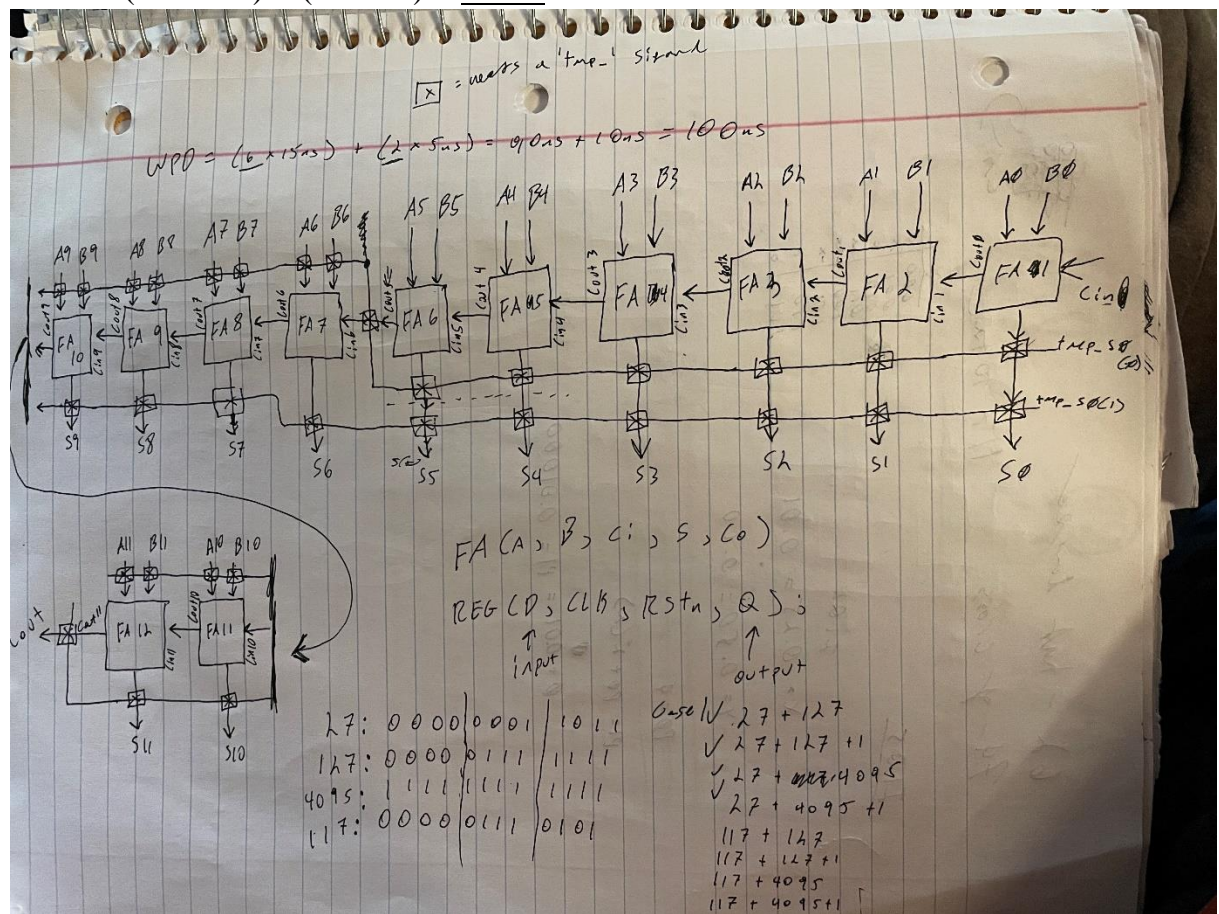 x = needs a 'tmp_' signal
WPD = (6 x 15ns) + (2 x 5ns) = 90ns + 10ns = 100ns
A9 B9 A8 B8 A7 B7 A6 B6 A5 B5 A4 B4 A3 B3 A2 B2 A1 B1 A0 B0
Cout9 Cout8 Cout7 Cout6 Cout5 Cout4 Cout3 Cout2 Cout1 Cout0
FA 10 FA 9 FA 8 FA 7 FA 6 FA 5 FA 4 FA 3 FA 2 FA 1
Cin9 Cin8 Cin7 Cin6 Cin5 Cin4 Cin3 Cin2 Cin1 Cin
tmp_S0(0)
tmp_S0(1)
S9 S8 S7 S6 S5 S4 S3 S2 S1 S0
A11 B11 A10 B10
Cout Cout11 FA 12 Cin11 Cout10 FA11 Cin10
S11 S10
FA (A, B, Ci, S, Co)
REG (D, CLK, RStn, Q);
input output
27: 0000 0001 1011
127: 0000 0111 1111
4095: 1111 1111 1111
117: 0000 0111 0101
Case 1 ✓ 27 + 127
✓ 27 + 127 + 1
✓ 27 + 4095
✓ 27 + 4095 + 1
117 + 127
117 + 127 + 1
117 + 4095
117 + 4095 + 1